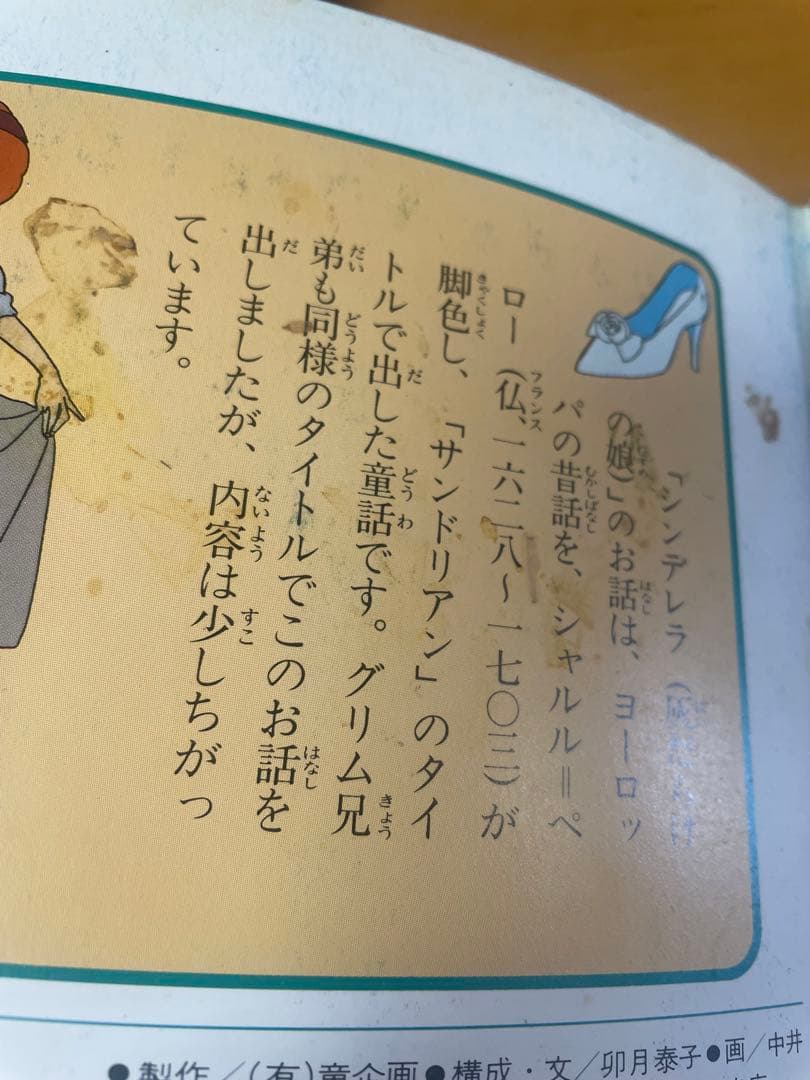 「シンデレラ(
の娘)」のお話は、ヨーロッ
パの昔話を、シャルル=ペ
ロー(仏、一六二八〜一七〇三)が
脚色し、「サンドリアン」のタイ
トルで出した童話です。グリム兄
弟も同様のタイトルでこのお話を
出しましたが、内容は少しちがっ
ています。
●製作/(有)童企画●構成・文/卯月泰子●画/中井